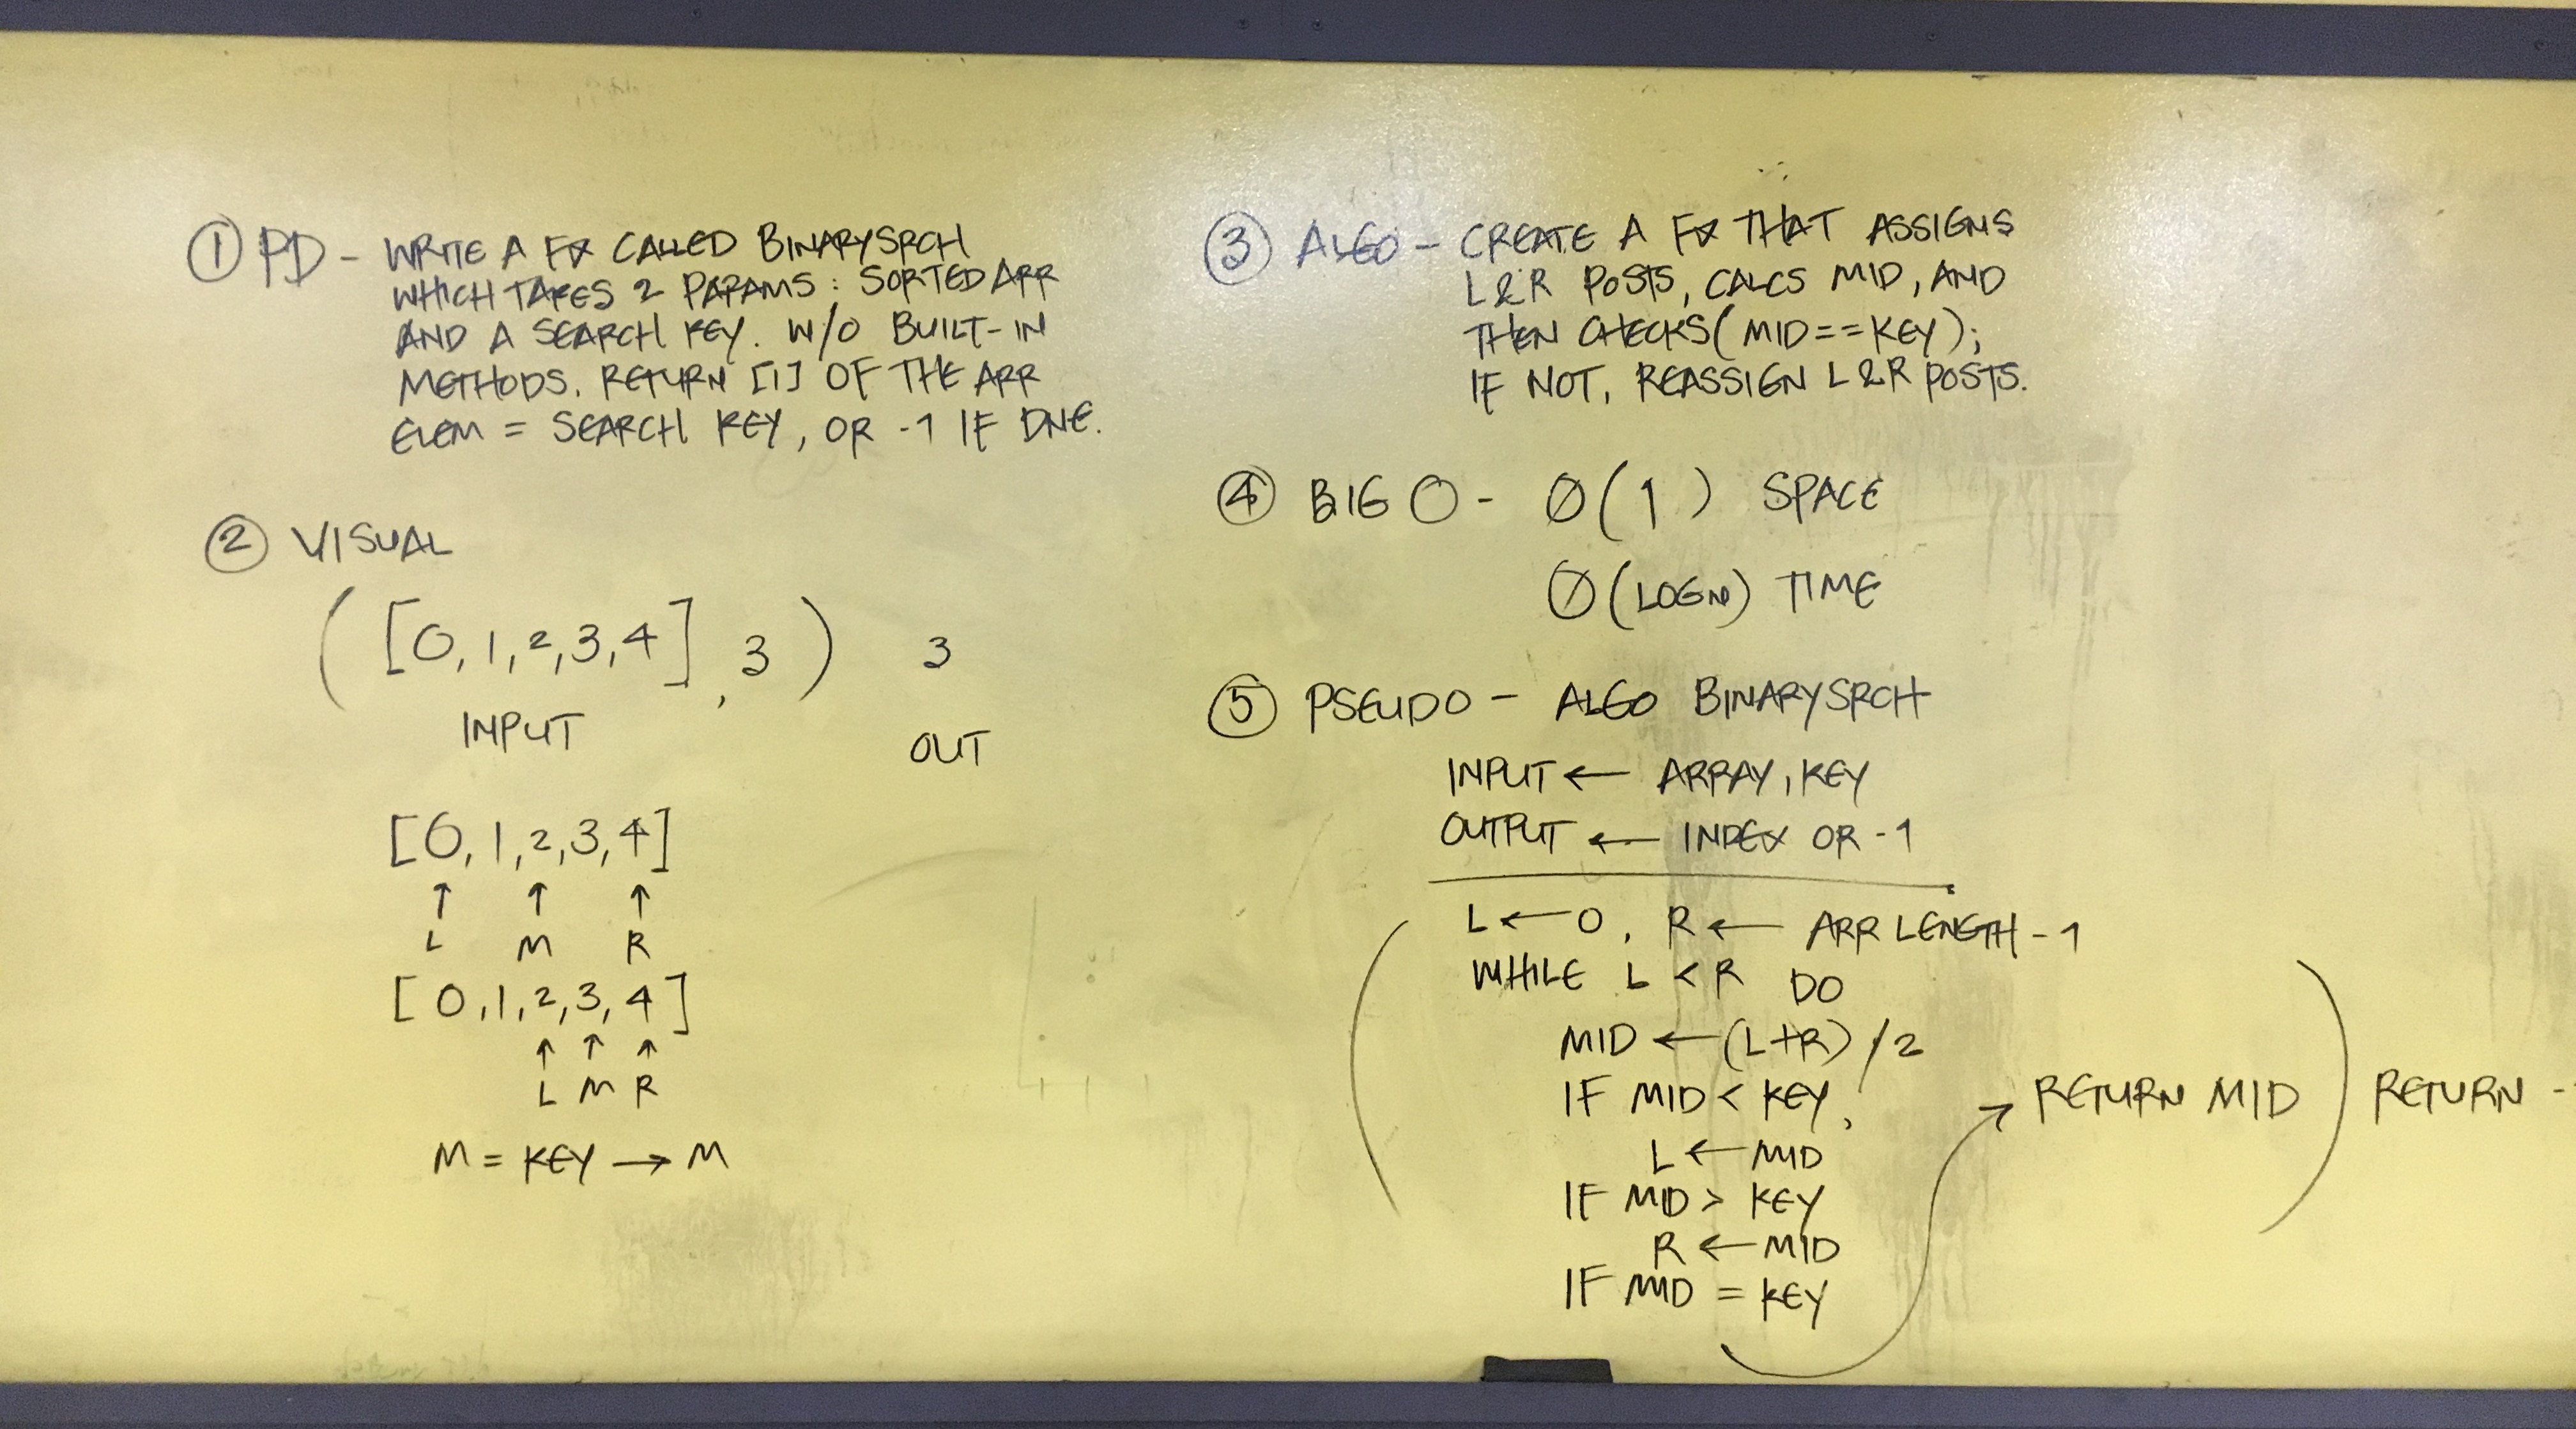 ① PD - WRITE A FX CALLED BINARYSRCH
WHICH TAKES 2 PARAMS: SORTED ARR
AND A SEARCH KEY. W/O BUILT-IN
METHODS. RETURN [1] OF THE ARR
ELEM = SEARCH KEY, OR -1 IF DNE.
② VISUAL
([0,1,2,3,4], 3) 3
INPUT OUT
[0,1,2,3,4]
↑ ↑ ↑
L M R
[0,1,2,3,4]
↑ ↑ ↑
L M R
M = KEY → M
③ ALGO - CREATE A FX THAT ASSIGNS
L&R POSTS, CALCS MID, AND
THEN CHECKS(MID==KEY);
IF NOT, REASSIGN L&R POSTS.
④ BIG O - Ø(1) SPACE
Ø(LOGN) TIME
⑤ PSEUDO - ALGO BINARYSRCH
INPUT ← ARRAY, KEY
OUTPUT ← INDEX OR -1
L ← 0, R ← ARR LENGTH - 1
WHILE L < R DO
MID ← (L+R)/2
IF MID < KEY,
L ← MID
IF MID > KEY
R ← MID
IF MID = KEY
→ RETURN MID) RETURN -